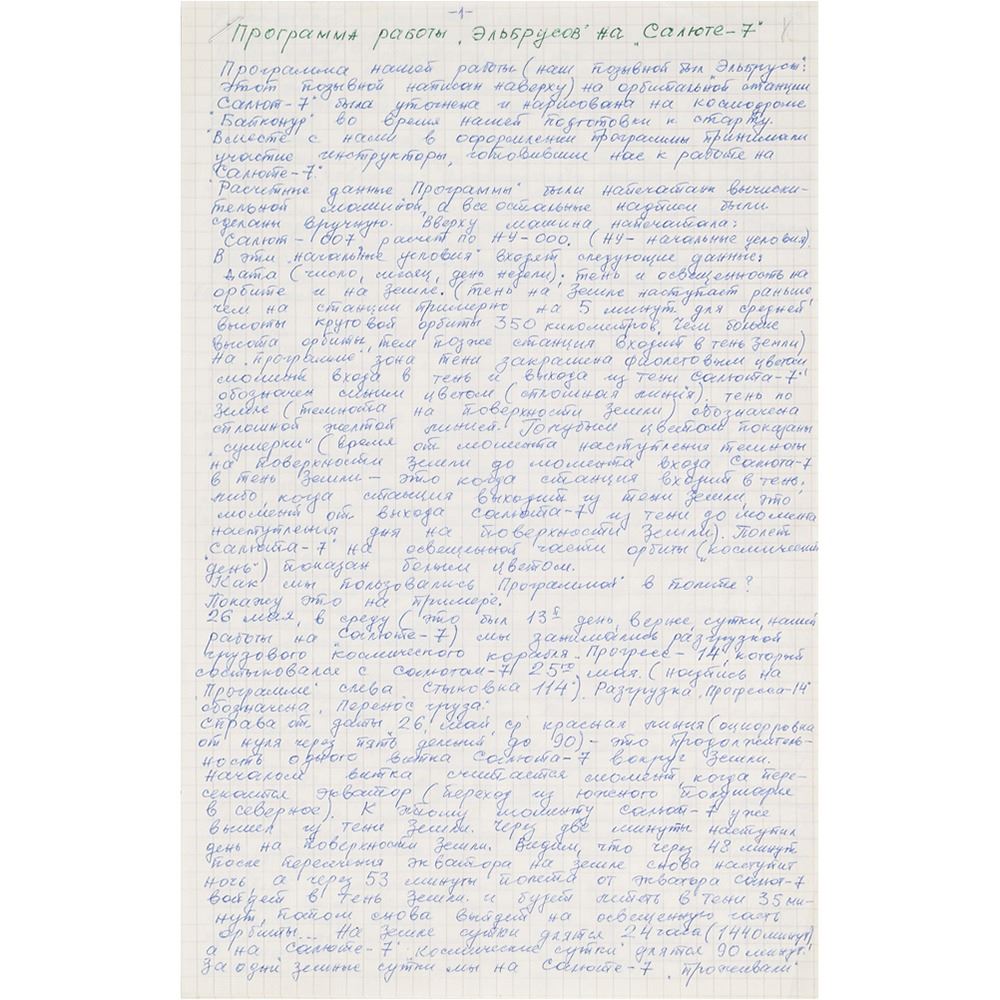 -1-
Программа работы „Эльбрусов" на „Салюте-7"
Программа нашей работы (наш позывной был „Эльбрусы":
этот позывной написан наверху) на орбитальной станции
Салют-7" была уточнена и нарисована на космодроме
"Байконур" во время нашей подготовки к старту.
Вместе с нами в оформлении программы принимали
участие инструкторы, готовившие нас к работе на
Салюте-7".
"Расчетные данные Программы" были напечатаны вычисли-
тельной машиной, а все остальные надписи были
сделаны вручную. Вверху машина напечатала:
Салют-007 расчет по НУ-000. (НУ- начальные условия).
В эти „начальные условия" входят следующие данные:
дата (число, месяц, день недели); тень и освещенность на
орбите и на Земле. (тень на Земле наступает раньше,
чем на станции примерно на 5 минут для средней
высоты круговой орбиты 350 километров. Чем больше
высота орбиты, тем позже станция входит в тень Земли)
На „программе" зона тени закрашена фиолетовым цветом
момент входа в тень и выхода из тени „Салюта-7"
обозначен синим цветом (сплошная линия); тень по
Земле (темнота на поверхности Земли) обозначена
сплошной желтой линией. Голубым цветом показаны
"сумерки" (время от момента наступления темноты
на поверхности Земли до момента входа Салюта-7
в тень Земли - это когда станция входит в тень,
либо, когда станция выходит из тени Земли, это
момент от выхода Салюта-7 из тени до момента
наступления дня на поверхности Земли). Полет
"Салюта-7" на освещенной части орбиты („космический
день") показан белым цветом.
Как мы пользовались „Программой" в полете?
Покажу это на примере.
26 мая, в среду (это был 13й день, вернее, сутки, нашей
работы на Салюте-7) мы занимались разгрузкой
грузового космического корабля „Прогресс-14", который
состыковался с Салютом-7 25го мая. (надпись на
"Программе" слева „Стыковка 114"). Разгрузка „Прогресса-14"
обозначена „Перенос груза".
Справа от даты „26, май, ср" красная линия (оцифровка
от нуля через пять делений до 90) - это продолжитель-
ность одного витка Салюта-7 вокруг Земли.
Началом витка считается момент, когда пере-
секается экватор (переход из южного полушария
в северное). К этому моменту Салют-7 уже
вышел из тени Земли. Через две минуты наступил
день на поверхности Земли. Видим, что через 48 минут
после пересечения экватора на Земле снова наступит
ночь, а через 53 минуты полета от экватора Салют-7
войдет в тень Земли и будет лететь в тени 35 ми-
нут, потом снова выйдет на освещенную часть
орбиты... На Земле сутки длятся 24 часа (1440 минут),
а на Салюте-7 „космические сутки" длятся 90 минут.
За одни земные сутки мы на Салюте-7 „проживали"